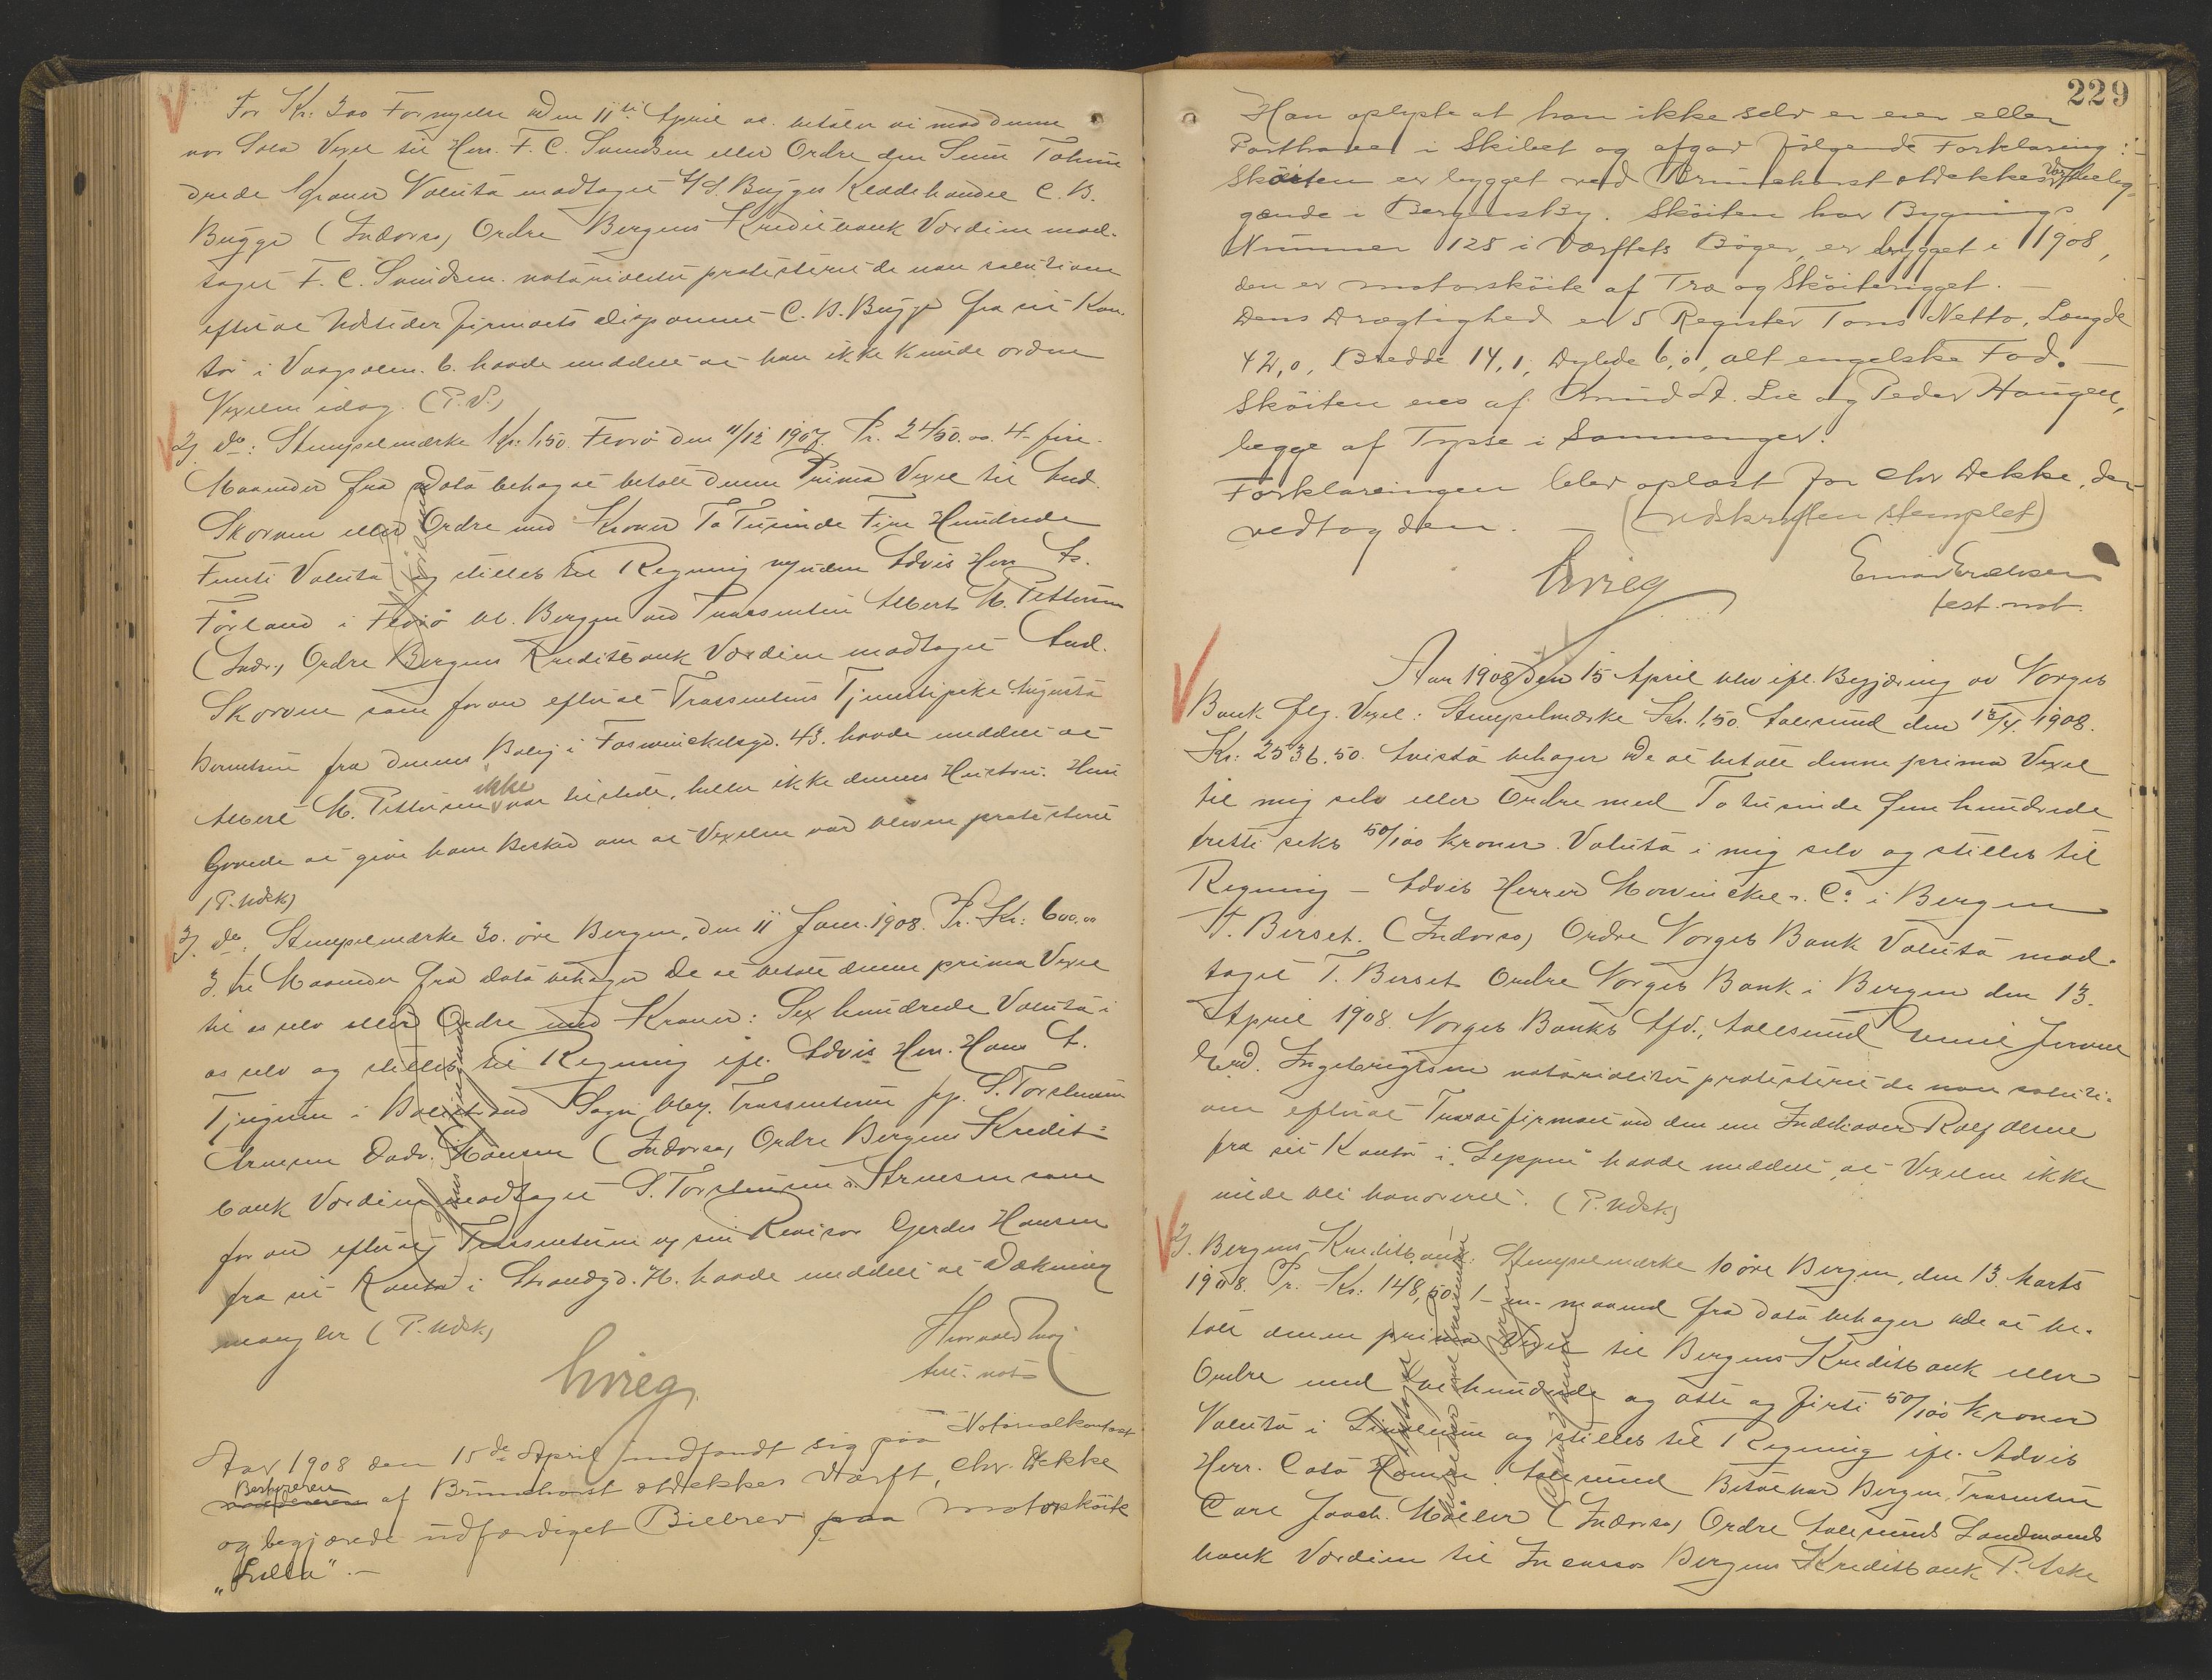 For Kr: 300 Fornyelse Den 11te April at. betaler vi mod denne
vor Sola Vexel til Herr. F. C. Svendsen eller Ordre den Sum Trehun
drede Kroner Valuta modtaget A/S. Bugges Klædehandel C. B.
Bugge (Indorso) Ordre Bergens Kreditbank Værdien mod-
taget F. C. Svendsen. notarialiter protesteret de non solutione
efter at Udsteder firmaets disponent C. B. Bugge fra sit Kon-
tor i Vaagsalm. 6. havde meddelt at han ikke kunde ordne
Vexelen idag. (P. U.)
2) do: Stempelmærke Kr: 1,50. Florø den 11/12 1907. Pr. 2450.00. 4 fire
Maaneder fra Dato behag at betale denne Prima Vexel til And.
Skorven eller Ordre med Kroner To Tusinde Fire Hundrede
Femti Valuta og stilles til Regning uden Advis Herr A.
Førland i Florø bt. Bergen ved Trassenten Albert M. Pettersen
(Indr.) Ordre Bergens Kreditbank Værdien modtaget And.
Skorven som foran efter at Trassentens Tjenestepike Augusta
Berntsen fra dennes Bolig i Foswinckelsgd. 43. havde meddelt at
Albert M. Pettersen ikke var tilstede, heller ikke dennes Hustru. Hun
lovede at give ham Besked om at Vexelen var bleven protesteret
(P. Udsk)
3) do: Stempelmærke 30. øre Bergen, den 11 Janr. 1908. Pr. Kr: 600.00
3. tre Maaneder fra dato behager De at betale denne prima Vexel
til os selv eller Ordre med Kroner: Sex hundrede Valuta i
os selv og stilles til Regning ifl. Advis Herr. Hans A.
Tjugum i Balestrand Sogn bbg. Trassenterne pp. S. Torstensen
Arnesen Dadv. Hansen (Indorso) Ordre Bergens Kredit-
bank Værdien modtaget S. Torstensen & Arnesen som
foran efter at Trassenterne ved sin Revisor Gerdes Hansen
fra sit Kontor i Strandgd. 72. havde meddelt at Dækning
mangler (P. Udsk)
Grieg
test: not
Aar 1908 den 15de April indfandt sig paa Notarialkontoret
Bestyreren af Brunchorst & Dekkes Værft, Chr. Dekke
og begjærede udfærdiget Bilbrev paa motorskøite
„Lilla“.
229
Han oplyste at han ikke selv er eier eller
Parthaver i Skibet og afgav følgende Forklaring:
Skøiten er bygget ved Brunchorst & Dekkes Værft belig-
gende i Bergensby. Skøiten har Bygnings
Nummer 128 i Værftets Bøger, er bygget i 1908,
den er motorskøite af Træ og Skøiterigget. —
Dens Drægtighed er 5 Register Tons Netto, Længde
42,0, Bredde 14,1, Dybde 6,0, alt engelske Fod.
Skøiten eies af Knud A. Lie og Peder Haugen,
begge af Tysse i Samnanger.
Forklaringen blev oplæst for Chr Dekke, der
vedtog den. — (Udskriften stemplet)
Grieg
Einar Erichsen
test. not.
Aar 1908 den 15 April blev ifl. Begjæring av Norges
Bank flg. Vexel: Stempelmærke Kr. 1.50. Aalesund den 13/4. 1908.
Kr: 2536.50. Avista behager De at betale denne prima Vexel
til mig selv eller Ordre med To tusinde fem hundrede
tretti seks 50/100 kroner. Valuta i mig selv og stilles til
Regning — Advis Herrer Mowinckel & Co i Bergen
T. Berset. (Indorso) Ordre Norges Bank Valuta mod-
taget T. Berset Ordre Norges Bank i Bergen den 13.
April 1908. Norges Banks Afd., Aalesund Emil Jervell
Erd. Ingebrigtsen notarialiter protesteret de non soluti-
one efter at Trassatfirmaet ved den ene Indehaver Rolf Olsen
fra sit Kontor i „Leppen“ havde meddelt, at Vexelen ikke
vilde bli honoreret. (P. Udsk)
3. Bergens Kreditbank: Stempelmærke 10 øre Bergen, den 13. Marts
1908. Pr. Kr: 148,50. 1 - en - maaned fra dato behager De at be-
tale denne prima Vexel til Bergens Kreditbank eller
Ordre med et hundrede og otte og firti 50/100 Kroner
Valuta i Lindem og stilles til Regning ifl. Advis
Herr. Cato Hansen Aalesund Betalbar Bergen. Trassenten
Carl Joach. Møller (Indorso) Ordre Aalesunds Landmands
bank Værdien til Incasso Bergens Kreditbank P. Aske